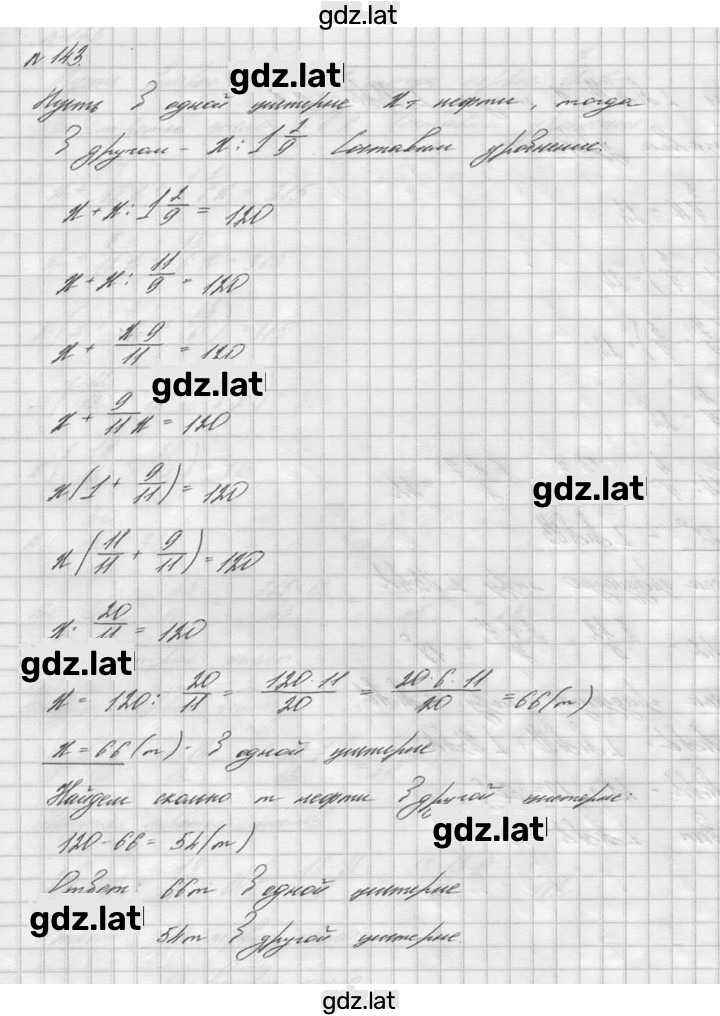 gdz.lat
№ 143.
gdz.lat
Пусть в одной цистерне x т нефти, тогда
в другом - x : 1 2/9 Составим уравнение:
x + x : 1 2/9 = 120
x + x : 11/9 = 120
x + x·9/11 = 120
gdz.lat
x + 9/11 x = 120
x(1 + 9/11) = 120
gdz.lat
x(11/11 + 9/11) = 120
x · 20/11 = 120
gdz.lat
x = 120 : 20/11 = 120·11/20 = 20·6·11/20 = 66(т)
x = 66(т) - в одной цистерне
Найдем сколько т нефти в другой цистерне:
gdz.lat
120 - 66 = 54(т)
Ответ: 66т в одной цистерне
gdz.lat
54т в другой цистерне.
gdz.lat